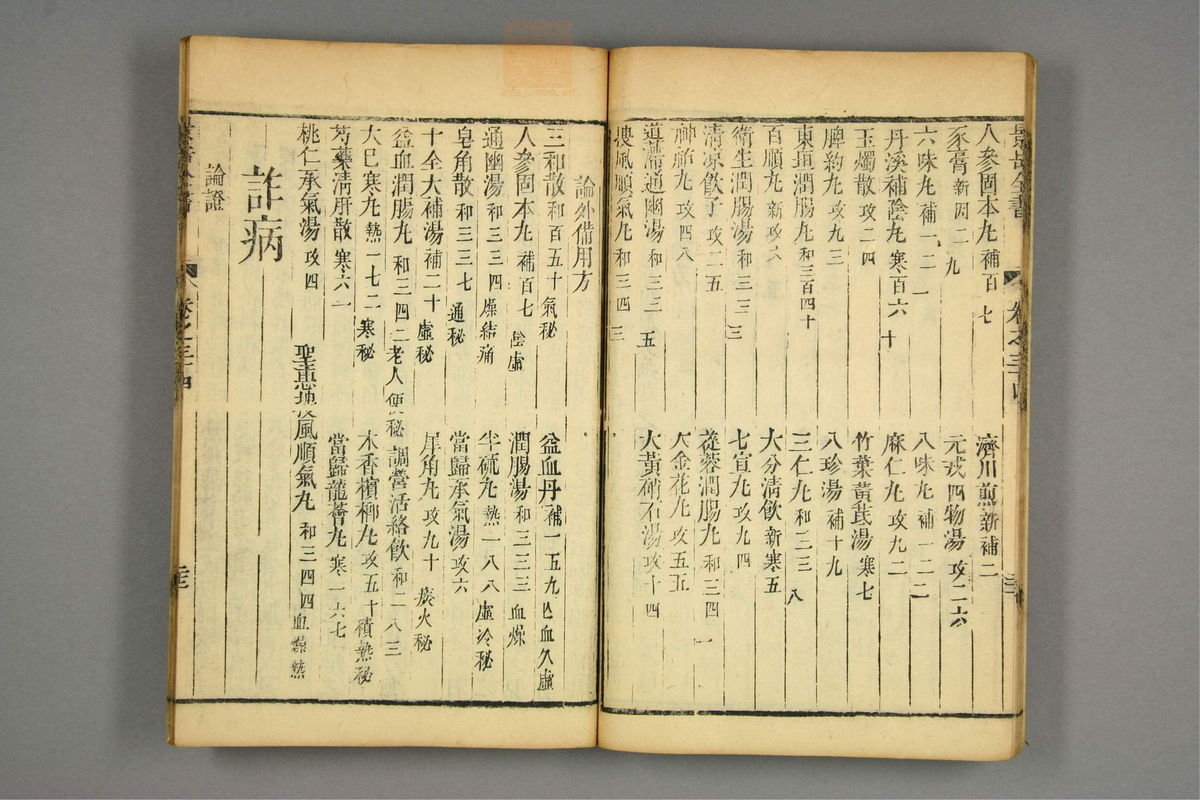 景岳全書
卷之三十四
人參固本丸 補百七 濟川煎 新補二
豕膏 新因二九 元戎四物湯 攻二六
六味丸 補一二一 八味丸 補一二二
丹溪補陰丸 寒百六十 麻仁丸 攻九二
玉燭散 攻二四 竹葉黃芪湯 寒七
脾約丸 攻九三 八珍湯 補十九
東垣潤腸丸 和三百四十 三仁丸 和三三八
百順丸 新攻六 大分清飲 新寒五
衛生潤腸湯 和三三三 七宣丸 攻九四
清凉飲子 攻二五 蓯蓉潤腸丸 和三四一
神芎丸 攻四八 大金花丸 攻五五
導滯通幽湯 和三三五 大黃硝石湯 攻十四
搜風順氣丸 和三四三
論外備用方
三和散 和百五十 氣秘 益血丹 補一五九 亡血久虛
人參固本丸 補百七 陰虛 潤腸湯 和三三三 血燥
通幽湯 和三三四 燥結痛 半硫丸 熱一八八 虛冷秘
皂角散 和三三七 通秘 當歸承氣湯 攻六
十全大補湯 補二十 虛秘 犀角丸 攻九十 痰火秘
益血潤腸丸 和三四二 老人便秘 調營活絡飲 和二八三
大巳寒丸 熱一七二 寒秘 木香檳榔丸 攻五十 積熱秘
芍藥清肝散 寒六一 當歸龍薈丸 寒一六七
桃仁承氣湯 攻四 聖惠搜風順氣丸 和三四四 血燥熱
詐病
論證
卷之三十四